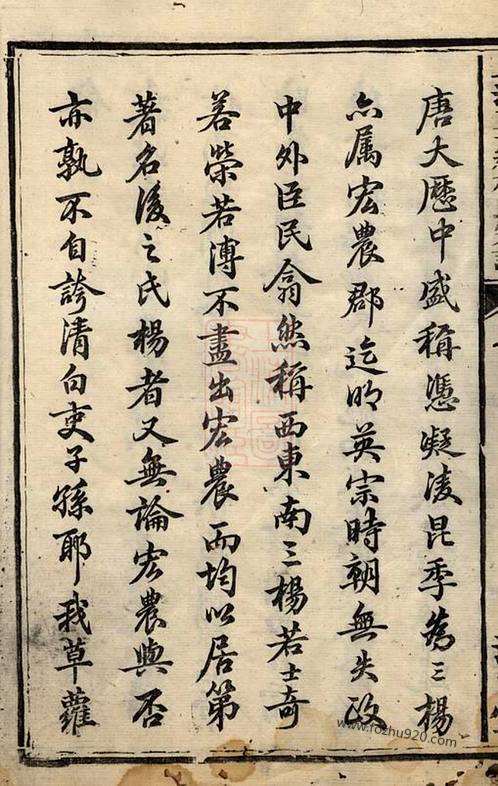 唐大歷中盛稱憑凝凌昆季為三楊
亦属宏農郡迄明英宗時朝無失政
中外臣民翕然稱西東南三楊若士奇
若榮若溥不盡出宏農而均以居第
著名後之氏楊者又無論宏農與否
亦孰不自誇清白吏子孫耶我草蘿
www.fozhu920.com